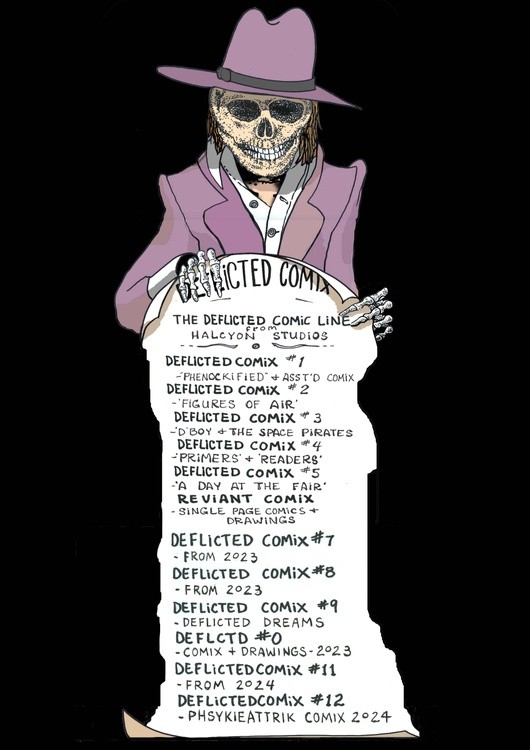 DEFLICTED COMIX
THE DEFLICTED COMIC LINE
from
HALCYON STUDIOS
DEFLICTED COMIX #1
-'PHENOCKIFIED' + ASST'D COMIX
DEFLICTED COMIX #2
-'FIGURES OF AIR'
DEFLICTED COMIX #3
-'D'BOY + THE SPACE PIRATES
DEFLICTED COMIX #4
-'PRIMERS' + 'READERS'
DEFLICTED COMIX #5
-'A DAY AT THE FAIR'
REVIANT COMIX
-SINGLE PAGE COMICS +
DRAWINGS
DEFLICTED COMIX #7
-FROM 2023
DEFLICTED COMIX #8
-FROM 2023
DEFLICTED COMIX #9
-DEFLICTED DREAMS
DEFLCTD #0
-COMIX + DRAWINGS-2023
DEFLICTEDCOMIX #11
-FROM 2024
DEFLICTEDCOMIX #12
-PHSYKIEATTRIK COMIX 2024